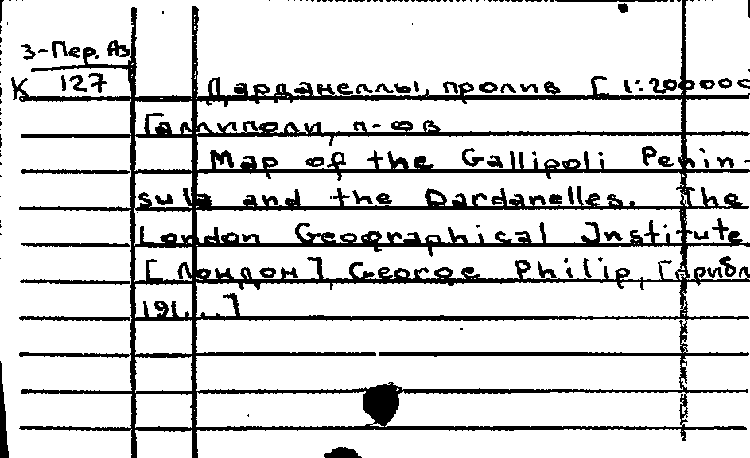 3-Пер. Аз
К 127
Дарданеллы, пролив [1:200000
Галлиполи, п-ов
Map of the Gallipoli Penin-
sula and the Dardanelles. The
London Geographical Institute
[Лондон], George Philip, [прибл
191...]